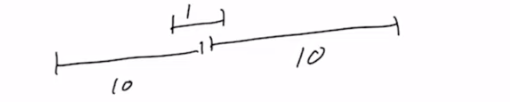 1
10
10